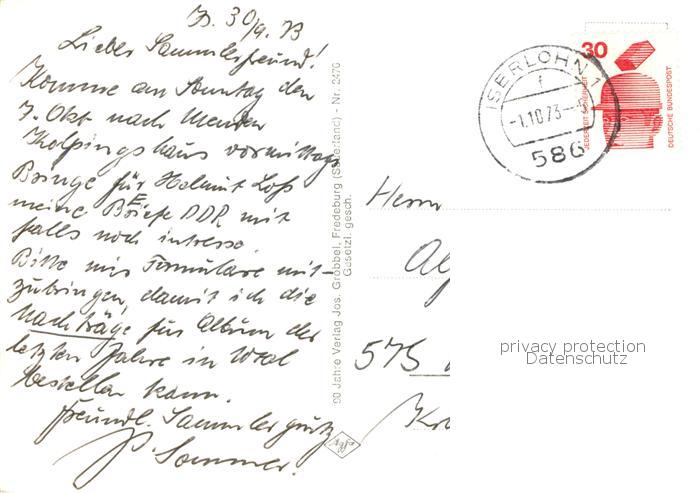 Js. 30/9. 73
Lieber Sammlerfreund!
Komme am Sonntag den
7. Okt nach Menden
Kolpingshaus vormittags
Bringe für Helmut Loß
meine Briefe DDR mit
falls noch intresse.
Bitte mir Formulare mit-
zubringen, damit ich die
nachträge für Album der
letzten Jahre in
bestellen kann.
Freundl. Sammlergrütz
P. Sommer.
90 Jahre Verlag Jos. Grobbel, Fredeburg (Sauerland) - Nr. 2470
Gesetzl. gesch.
agfa
ISERLOHN 1
f
-1.10.73
586
30
JEDERZEIT SICHERHEIT
DEUTSCHE BUNDESPOST
Herrn
575
privacy protection
Datenschutz